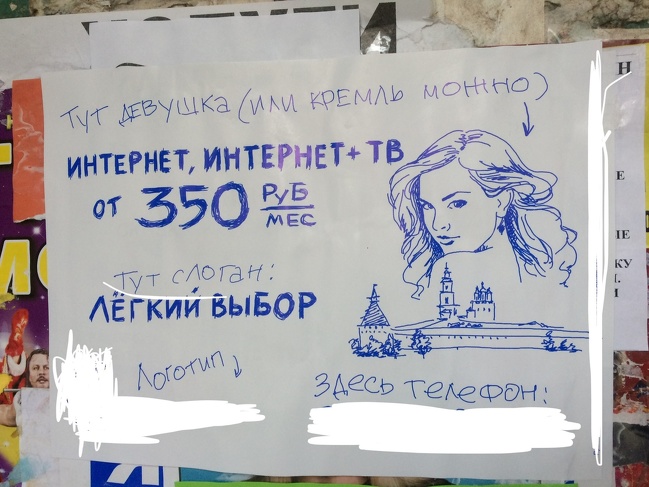 ТУТ ДЕВУШКА (ИЛИ КРЕМЛЬ МОЖНО)
ИНТЕРНЕТ, ИНТЕРНЕТ+ТВ
от 350 РуБ
МЕС
ТУТ СЛОГАН:
ЛЁГКИЙ ВЫБОР
ЛОГОТИП
ЗДЕСЬ ТЕЛЕФОН:
Н
Е
ІЕ
КУ
І.
И
Я